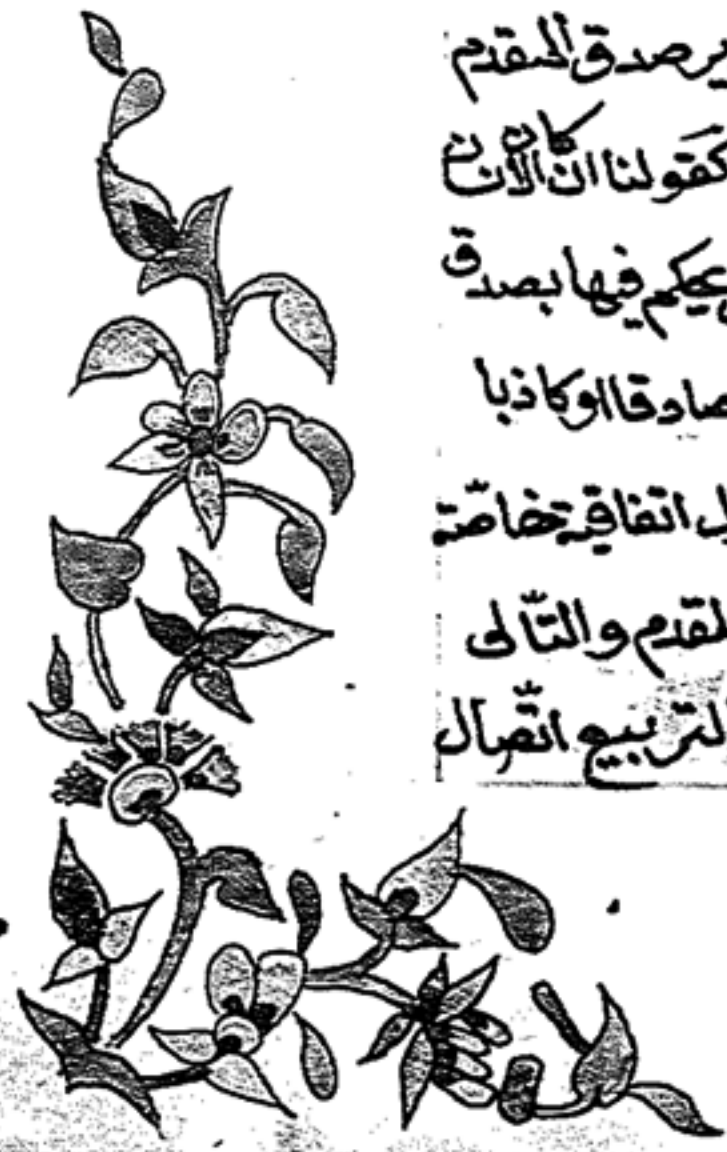 صدق المقدم
كقولنا ان كان الانسان
يحكم فيها بصدق
صادقا او كاذبا
اتفاقية خاصة
المقدم والتالى
التربيع اتّصال